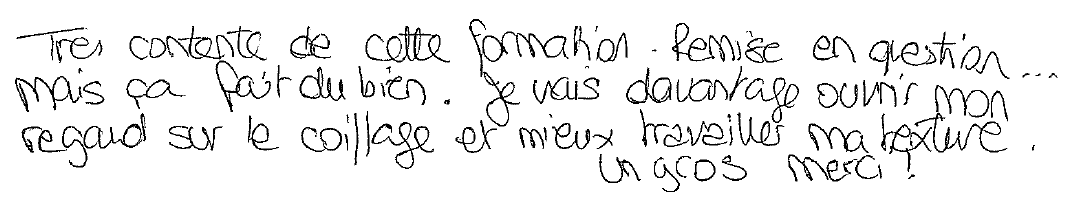 Très contente de cette formation. Remise en question...
mais ça fait du bien. Je vais davantage ouvrir mon
regard sur le coillage et mieux travailler ma texture.
Un gros merci !